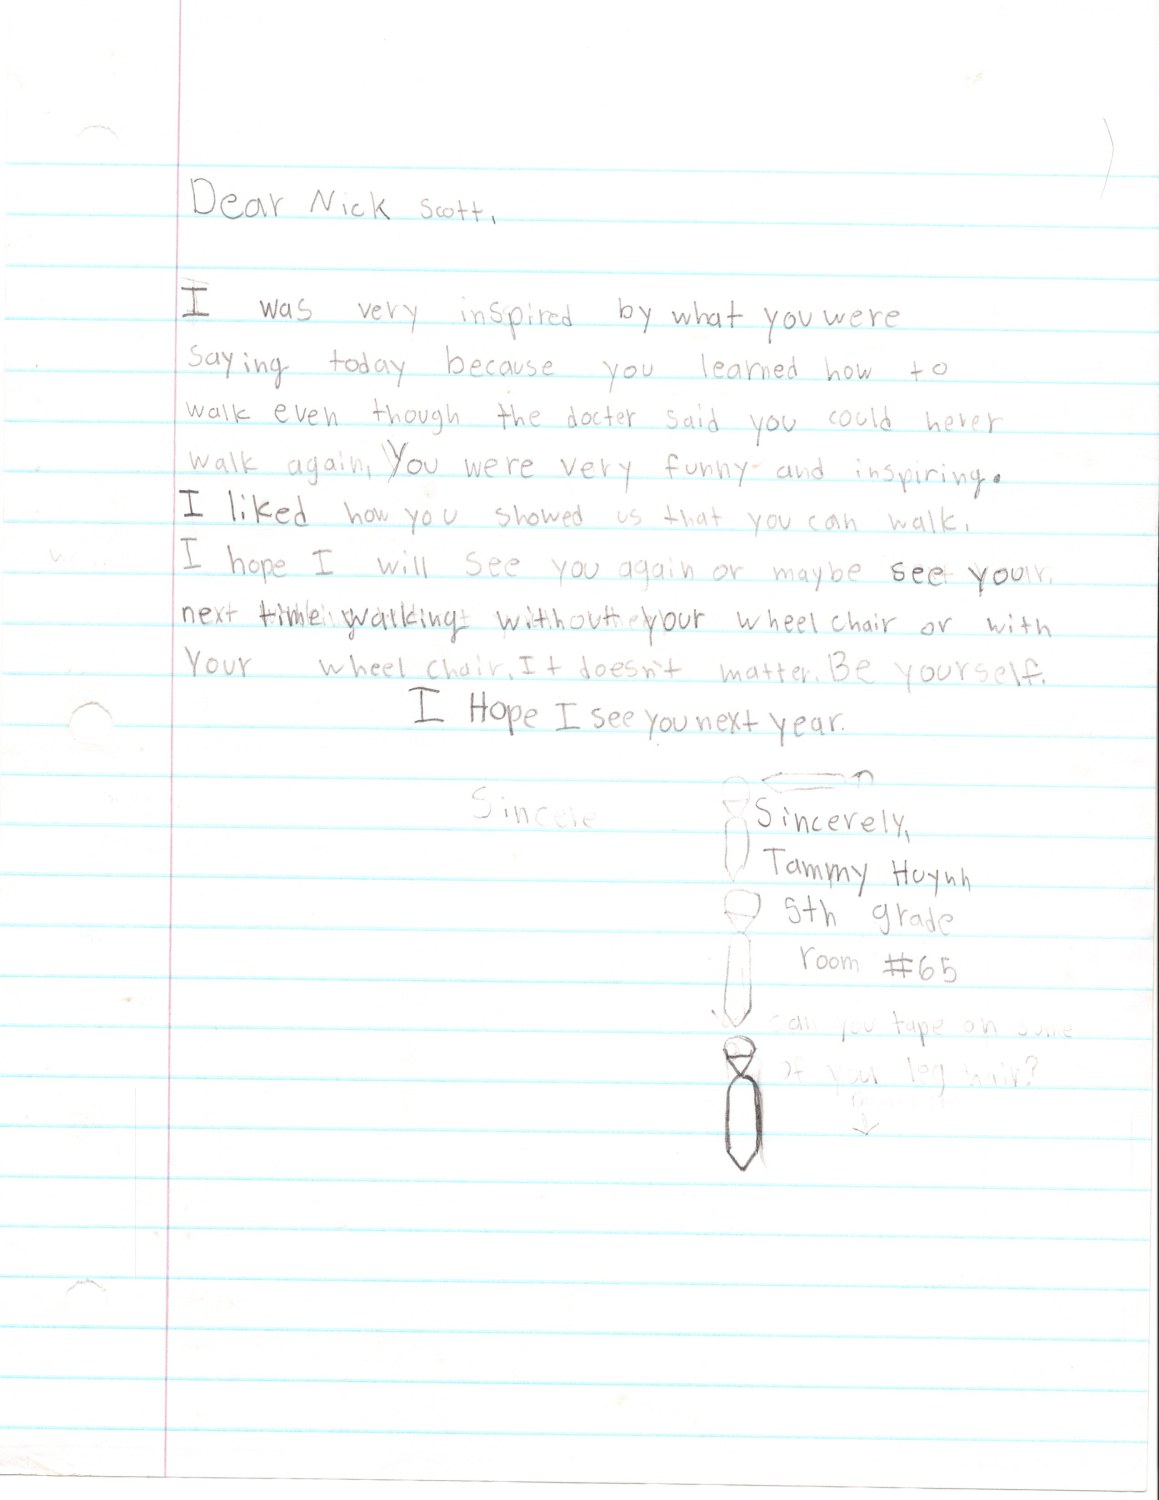 Dear Nick Scott,
I was very inspired by what you were
saying today because you learned how to
walk even though the docter said you could never
walk again, You were very funny and inspiring.
I liked how you showed us that you can walk.
I hope I will see you again or maybe see your
next time walking without your wheel chair or with
Your wheel chair. It doesn't matter. Be yourself.
I Hope I see you next year.
Sincere
Sincerely,
Tammy Huynh
5th grade
room #65
can you tape on some
of your leg hair?